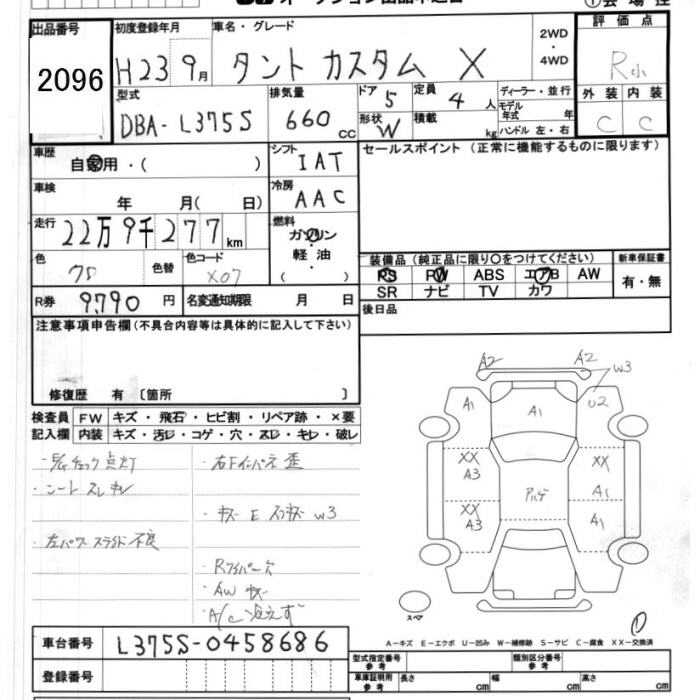 出品番号 初度登録年月 車名・グレード 評価点
2096 H23 9月 タント カスタム X 2WD・4WD R小
型式 排気量 ドア 定員 ディーラー・並行 外装 内装
DBA-L375S 660cc 5 4人 モデル年式 年 C C
形状 W 積載 kg ハンドル 左・右
車歴 自家用・( ) シフト IAT セールスポイント (正常に機能するものに限ります)
車検 年 月( 日) 冷房 AAC
走行 22万9千277km 燃料 ガソリン・軽油( )
色 色替 色コード X07
装備品 (純正品に限り○をつけてください) 新車保証書
PS PW ABS エアB AW 有・無
SR ナビ TV カワ
R券 9,790円 名変通知期限 月 日 後日品
注意事項申告欄(不具合内容等は具体的に記入して下さい)
修復歴 有〔箇所 〕
検査員 FW キズ・飛石・ヒビ割・リペア跡・×要
記入欄 内装 キズ・汚レ・コゲ・穴・スレ・キレ・破レ
・チェック点灯 ・右Fインパネ歪
・シートスレキレ
・キズ E W3
・左パワースライド不良
・Rワイパー穴
・AW キズ
・A/C 冷えず
A2 A2 W3
A1 A1 U2
XX XX
A3 A1
XX
A3 A1
スペア
①
A-キズ E-エクボ U-凹み W-補修跡 S-サビ C-腐食 XX-交換済
車台番号 L375S-0458686
登録番号
型式指定番号 参考 類別区分番号 参考
車庫証明用 参考 長さ cm 幅 cm 高さ cm